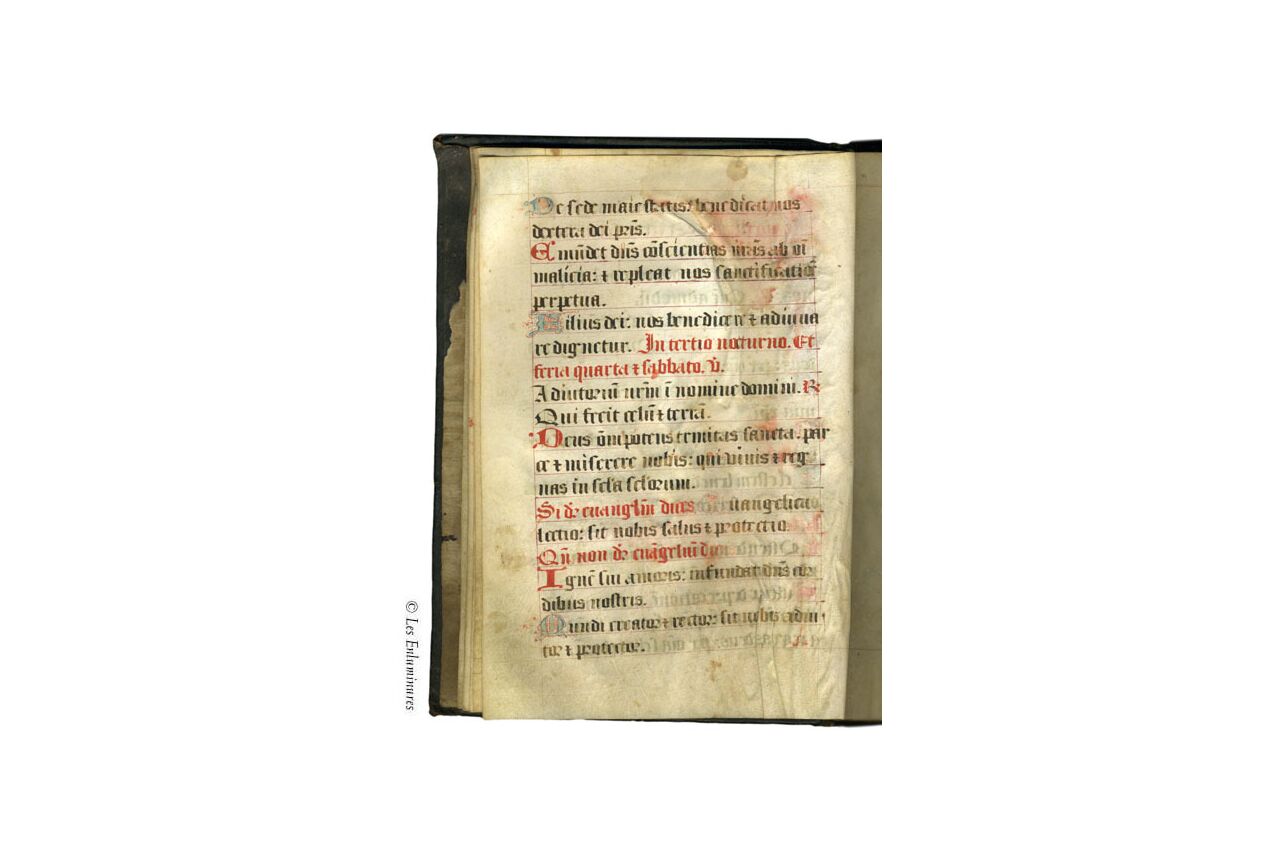 De sede maiestatis: benedicat nos
dextera dei pris̄.
Emūdet dn̄s cōsciencias nr̄as ab oī
malicia: ⁊ repleat nos sanctificatiōe
perpetua.
Filius dei: nos benedicere ⁊ adiuua
re dignetur. In tertio nocturno. Et
feria quarta ⁊ sabbato. v̄.
Adiutoriū nr̄m ī nomine domini. R
Qui fecit celū ⁊ terrā.
Deus ōnipotens trinitas sancta. par
ce ⁊ miserere nobis: qui viuis ⁊ reg
nas in scl̄a scl̄orum.
Si de euangl̄iū dices euangelica
lectio: sit nobis salus ⁊ protectio.
Qn̄ non de euāgeliū
Ignē sui amoris: infundat dn̄s cor
dibus nostris.
Mundi creator ⁊ rector: sit nobis adiu
tor ⁊ protector.
© Les Enluminures